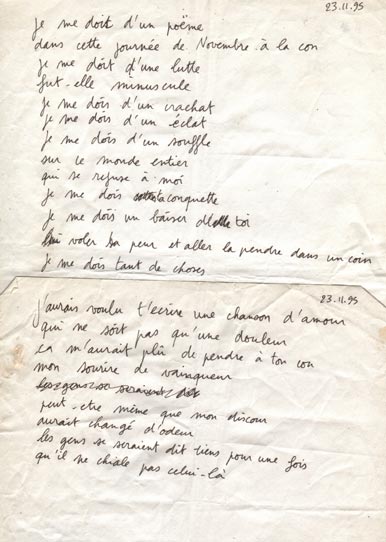 23.11.95
Je me doit d'un poëme
dans cette journée de Novembre à la con
je me doit d'une lutte
fut-elle minuscule
je me dois d'un crachat
je me dois d'un éclat
je me dois d'un souffle
sur le monde entier
qui se refuse à moi
je me dois la conquette
je me dois un baiser de toi
voler sa peur et aller la pendre dans un coin
je me dois tant de choses
23.11.95
j'aurais voulu t'écrire une chanson d'amour
qui ne soit pas qu'une douleur
ça m'aurait plû de pendre à ton cou
mon sourire de vainqueur
peut-etre même que mon discour
aurait changé d'odeur
les gens se seraient dit tiens pour une fois
qu'il ne chiale pas celui-là